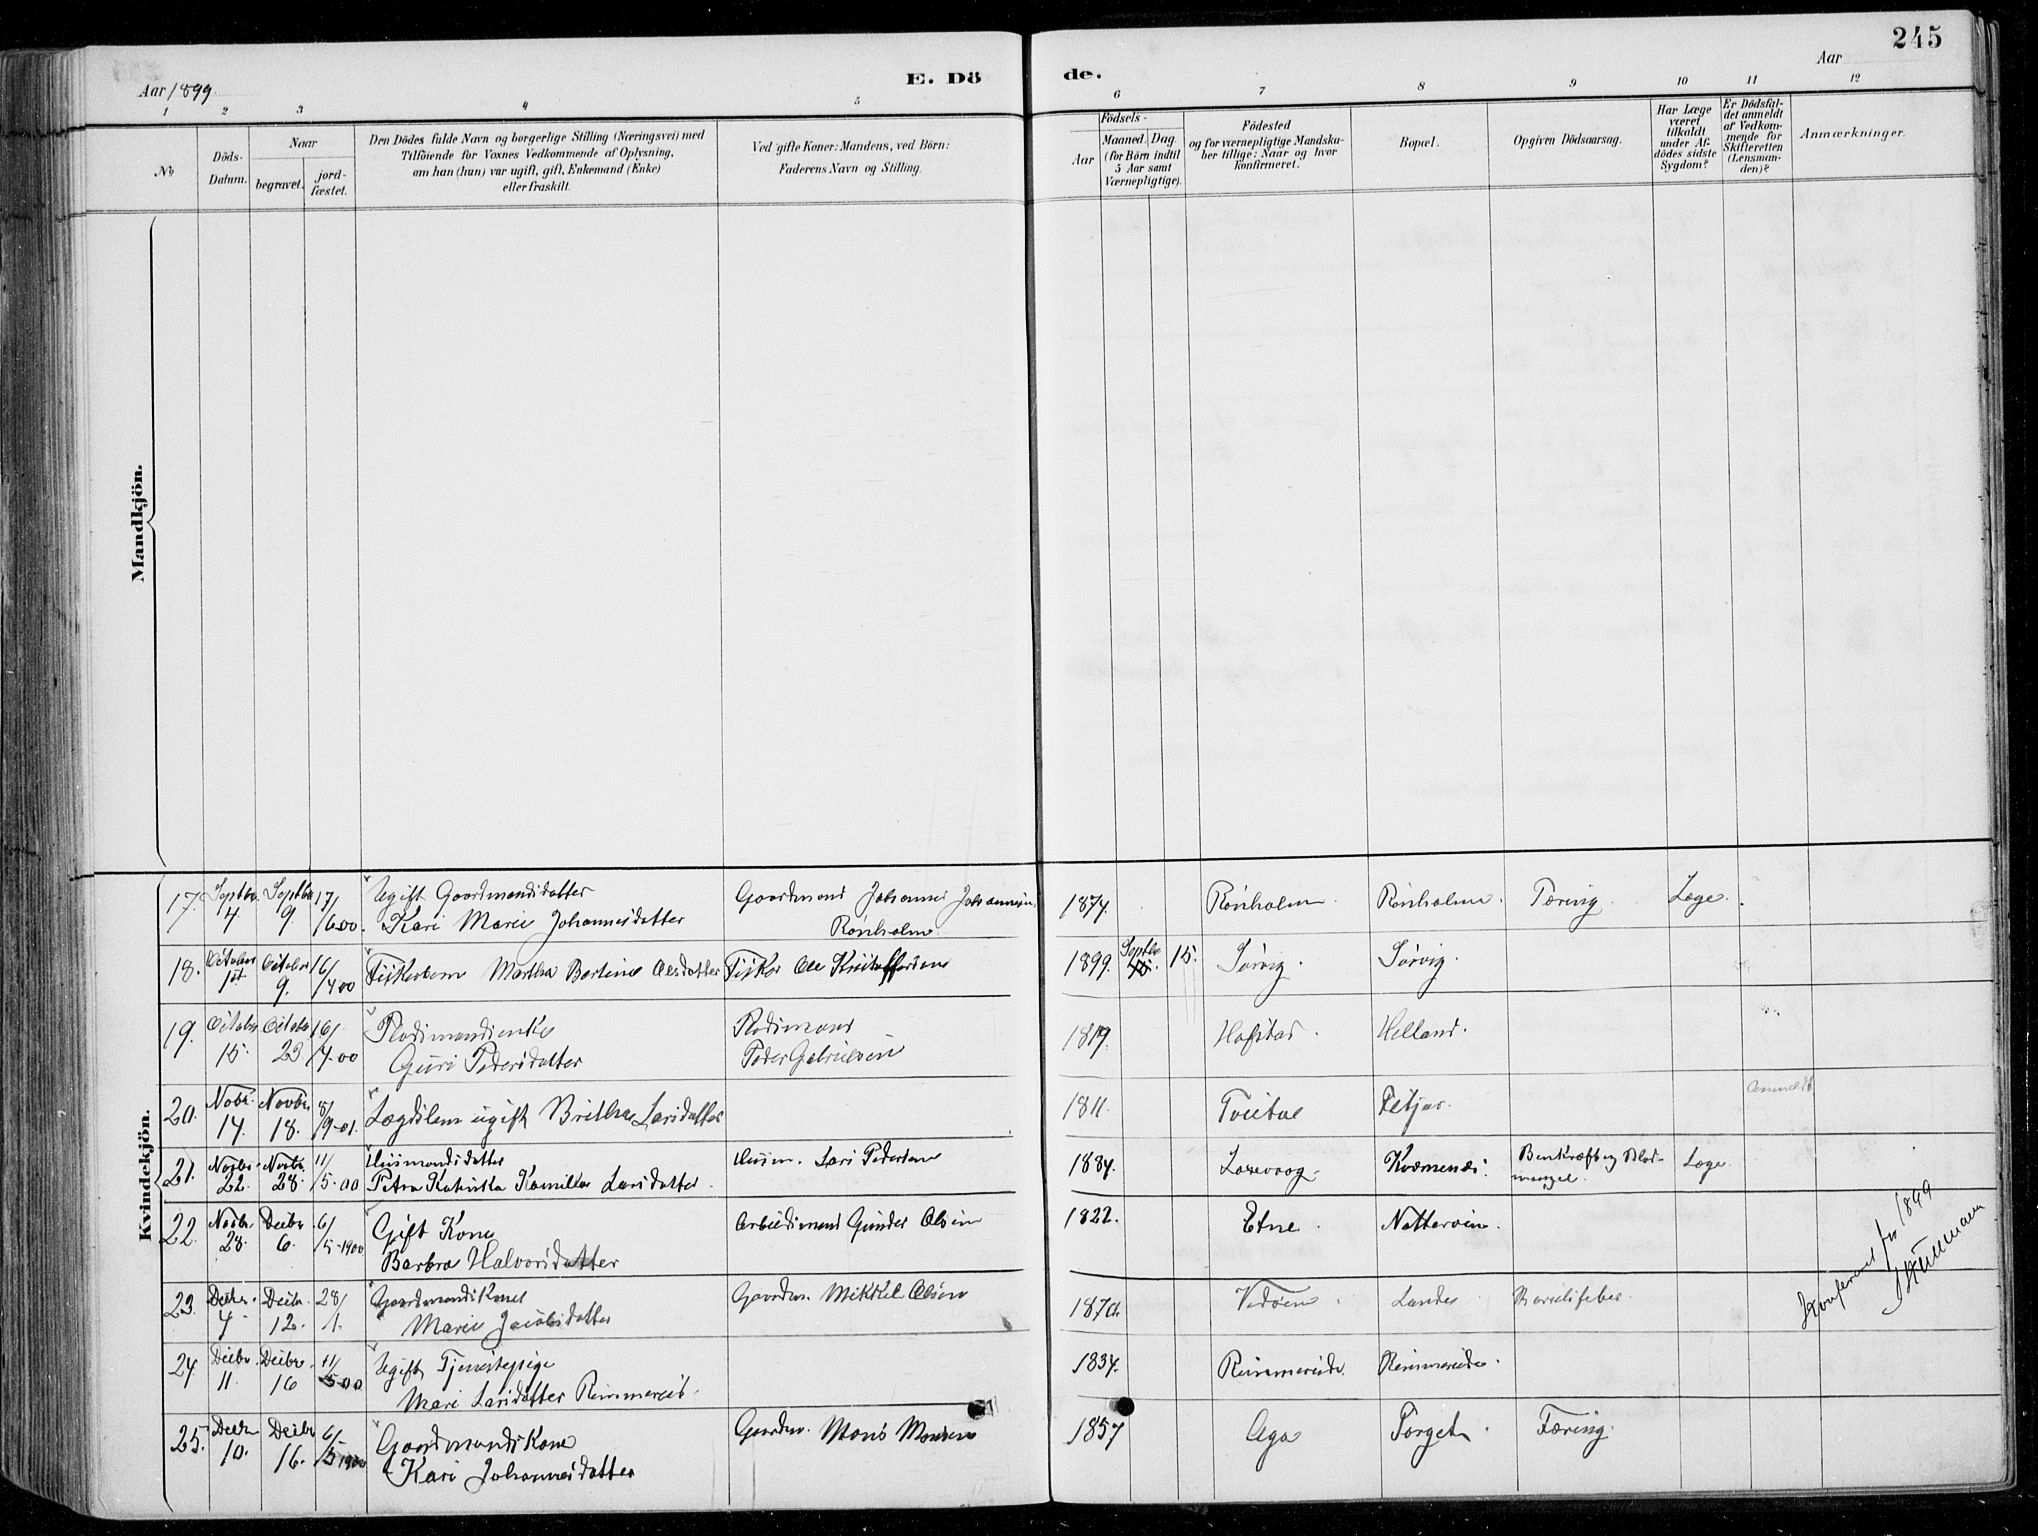 245
Aar 1899.
E. Dö
de.
Aar
1 2 3 4 5 6 7 8 9 10 11 12
No
Döds-
Datum.
Naar
begravet.
jord-
fæstet.
Den Dödes fulde Navn og borgerlige Stilling (Næringsvei) med
Tilföiende for Voxnes Vedkommende af Oplysning,
om han (hun) var ugift, gift, Enkemand (Enke)
eller fraskilt.
Ved gifte Koner: Mandens, ved Börn:
Faderens Navn og Stilling.
Födsels-
Aar
Maaned. Dag.
(for Børn indtil
5 Aar samt
Værnepligtige).
Födested
og for værnepligtige Mandska-
ber tillige: Naar og hvor
konfirmeret.
Bopæl.
Opgiven Dödsaarsag.
Har Læge
været
tilkaldt
under Af-
dödes sidste
Sygdom?
Er Dödsfal-
det anmeldt
af Vedkom-
mende for
Skifteretten
(Lensman-
den)?
Anmærkninger.
Mandkjön.
Kvindekjön.
17. Septbr. 4 Septbr 9. 17/6 00. Ugift Gaardmandsdatter Gaardmand Johannes Johannesen 1874. Rönholm. Rönholm. Tæring. Læge.
Kari Marie Johannesdatter Rönholm
18. October 1st October 9. 16/4 00 Fiskerbarn Martha Bertine Olesdatter Fisker Ole Kristoffersen 1899. Septbr. 15. Sørvig. Sørvig.
19. October 15. October 23 16/4.00 Pladsmandsenke Pladsmand 1819. Hafstad. Helland.
Guri Pedersdatter Peder Gabrielsen
20. Novbr. 14. Novbr. 18. 8/9-01. Lægdslem ugift Britha Larsdatter 1811. Petjar. Anmeldt
21. Novbr. 22. Novbr. 28. 11/5-00 Husmandsdatter Husm. Lars Pedersen 1884. Kværnenæs. Benkræft og Blod- Læge.
Petra Katinka Kamilla Larsdatter. mangel.
22. Novbr 28. Decbr 6. 6/5-1900 Gift Kone Arbeidsmand Gunder Olsen 1822. Etne. Nattervin.
Barbra Halvorsdatter
23. Decbr. 4. Decbr. 12. 28/1. Gaardmandskone Gaardm. Mikkel Olsen 1870. Vedøen. Landes. Barselsfeber
Marie Jacobsdatter
24. Decbr. 11. Decbr. 16 11/5 00 Ugift Tjenestepige 1834. Rimmereide. Rimmereide.
Mari Larsdatter Rimmereid.
25. Decbr 10. Decbr 16. 6/5 1900 Gaardmandskone Gaardm. Mons Monsen 1857 Aga Torget. Tæring.
Kari Johannesdatter
Konfereret for 1899